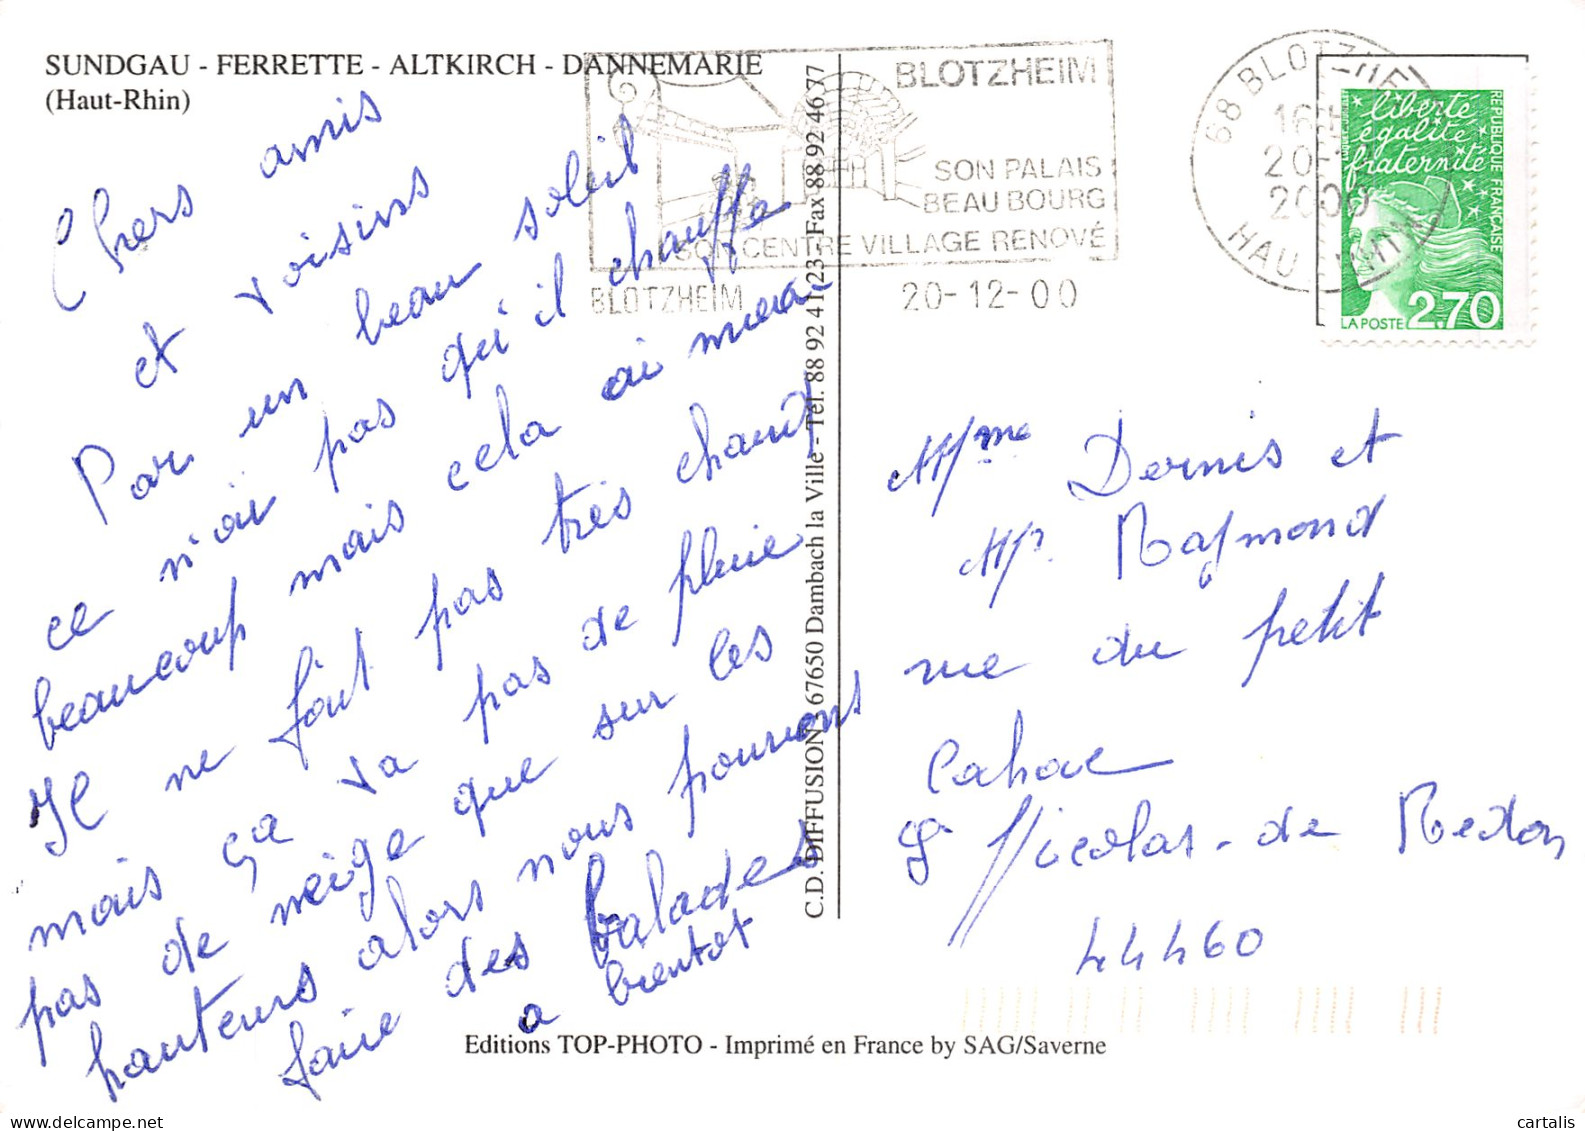 SUNDGAU - FERRETTE - ALTKIRCH - DANNEMARIE
(Haut-Rhin)
BLOTZHEIM
SON PALAIS
BEAU BOURG
SON CENTRE VILLAGE RENOVÉ
BLOTZHEIM
20-12-00
68 BLOTZHEIM
16H
20-12
2000
HAUT RHIN
liberté
égalité
fraternité
RÉPUBLIQUE FRANÇAISE
LA POSTE 2,70
Chers amis
et voisins
Par un beau soleil
ce n'ai pas qu'il chauffe
beaucoup mais cela ai mieux
Il ne fait pas très chaud
mais ça va pas de pluie
pas de neige que sur les
hauteurs alors nous pourrons
faire des balades
a bientot
C.D. DIFFUSION - 67650 Dambach la Ville - Tél. 88 92 41 23 - Fax 88 92 46 77
Mme Denis et
Mr Raymond
rue du petit
Cahae
St Nicolas-de Redon
44460
Editions TOP-PHOTO - Imprimé en France by SAG/Saverne
cartalis